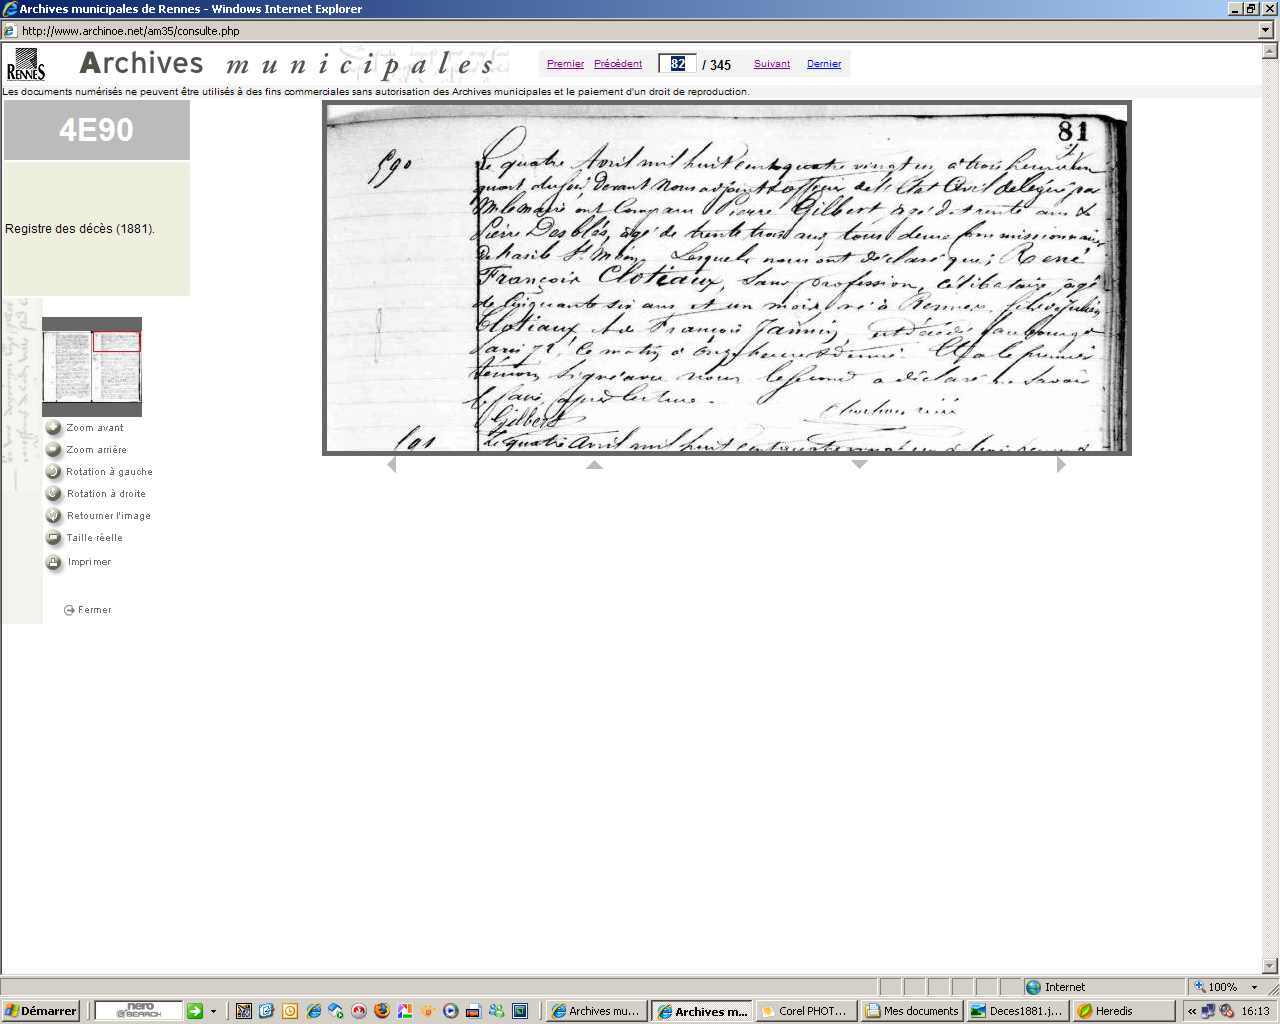 Archives municipales de Rennes - Windows Internet Explorer
http://www.archinoe.net/am35/consulte.php
RENNES
Archives municipales
Premier Précédent 82 / 345 Suivant Dernier
Les documents numérisés ne peuvent être utilisés à des fins commerciales sans autorisation des Archives municipales et le paiement d'un droit de reproduction.
4E90
Registre des décès (1881).
81
590
Le quatre Avril mil huit cent quatre vingt un à trois heures un
quart du soir, Devant Nous adjoint & officier de l'Etat Civil délégué par
M. le Maire ont Comparu Pierre Gilbert âgé de trente ans &
Pierre Desblés, âgé de trente trois ans, tous deux Commissionnaires
De hasile St Méen. Lesquels nous ont déclaré que; René
François Clotiaux, Sans profession, célibataire, âgé
de Cinquante six ans et un mois, né à Rennes, fils de Julien
Clotiaux & de François Jamin, est décédé faubourg
Paris 72, ce matin à onze heures & demie. Et a le premier
témoin signé avec nous le Second a déclaré ne Savoir
le faire, après lecture.
Gilbert
591
Le quatre Avril mil huit cent quatre vingt un à trois heures
Zoom avant
Zoom arrière
Rotation à gauche
Rotation à droite
Retourner l'image
Taille réelle
Imprimer
Fermer
Internet 100%
Démarrer nero SEARCH Archives mu... Archives m... Corel PHOT... Mes documents Deces1881.j... Heredis « 16:13